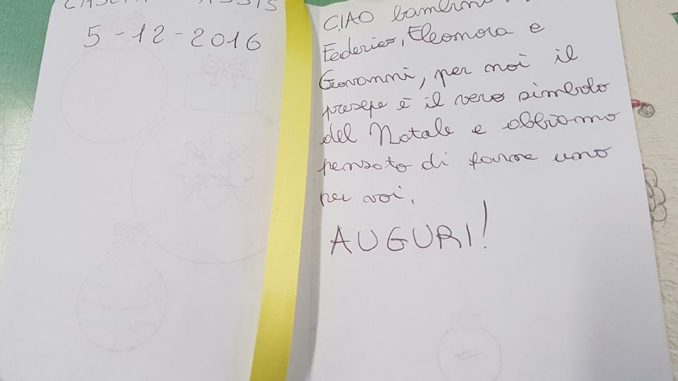 5-12-2016
CIAO bambini
Federico, Eleonora e
Giovanni, per noi il
presepe è il vero simbolo
del Natale e abbiamo
pensato di farne uno
per voi.
AUGURI!